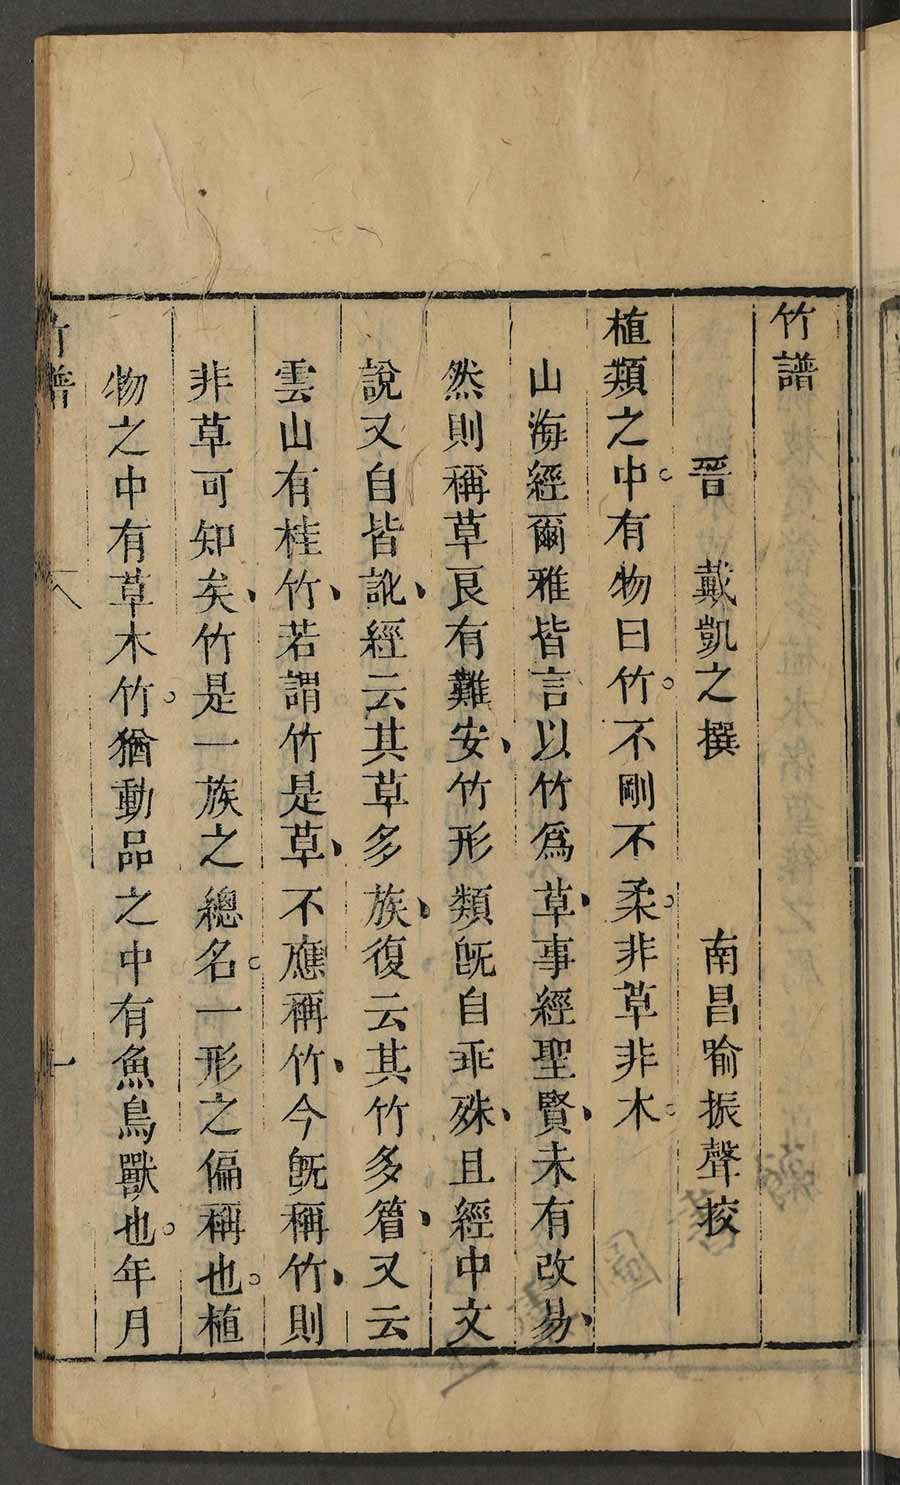 竹譜
晉 戴凱之撰 南昌喻振聲挍
植類之中。有物曰竹。不剛不柔。非草非木。
山海經爾雅皆言以竹爲草、事經聖賢、未有改易、
然則稱草良有難安、竹形類既自乖殊、且經中文
說又自皆訛、經云其草多族、復云其竹多䈽、又云
雲山有桂竹、若謂竹是草、不應稱竹、今既稱竹、則
非草可知矣、竹是一族之總名。一形之偏稱也。植
物之中有草木竹。猶動品之中有魚鳥獸也。年月
竹譜 八 一